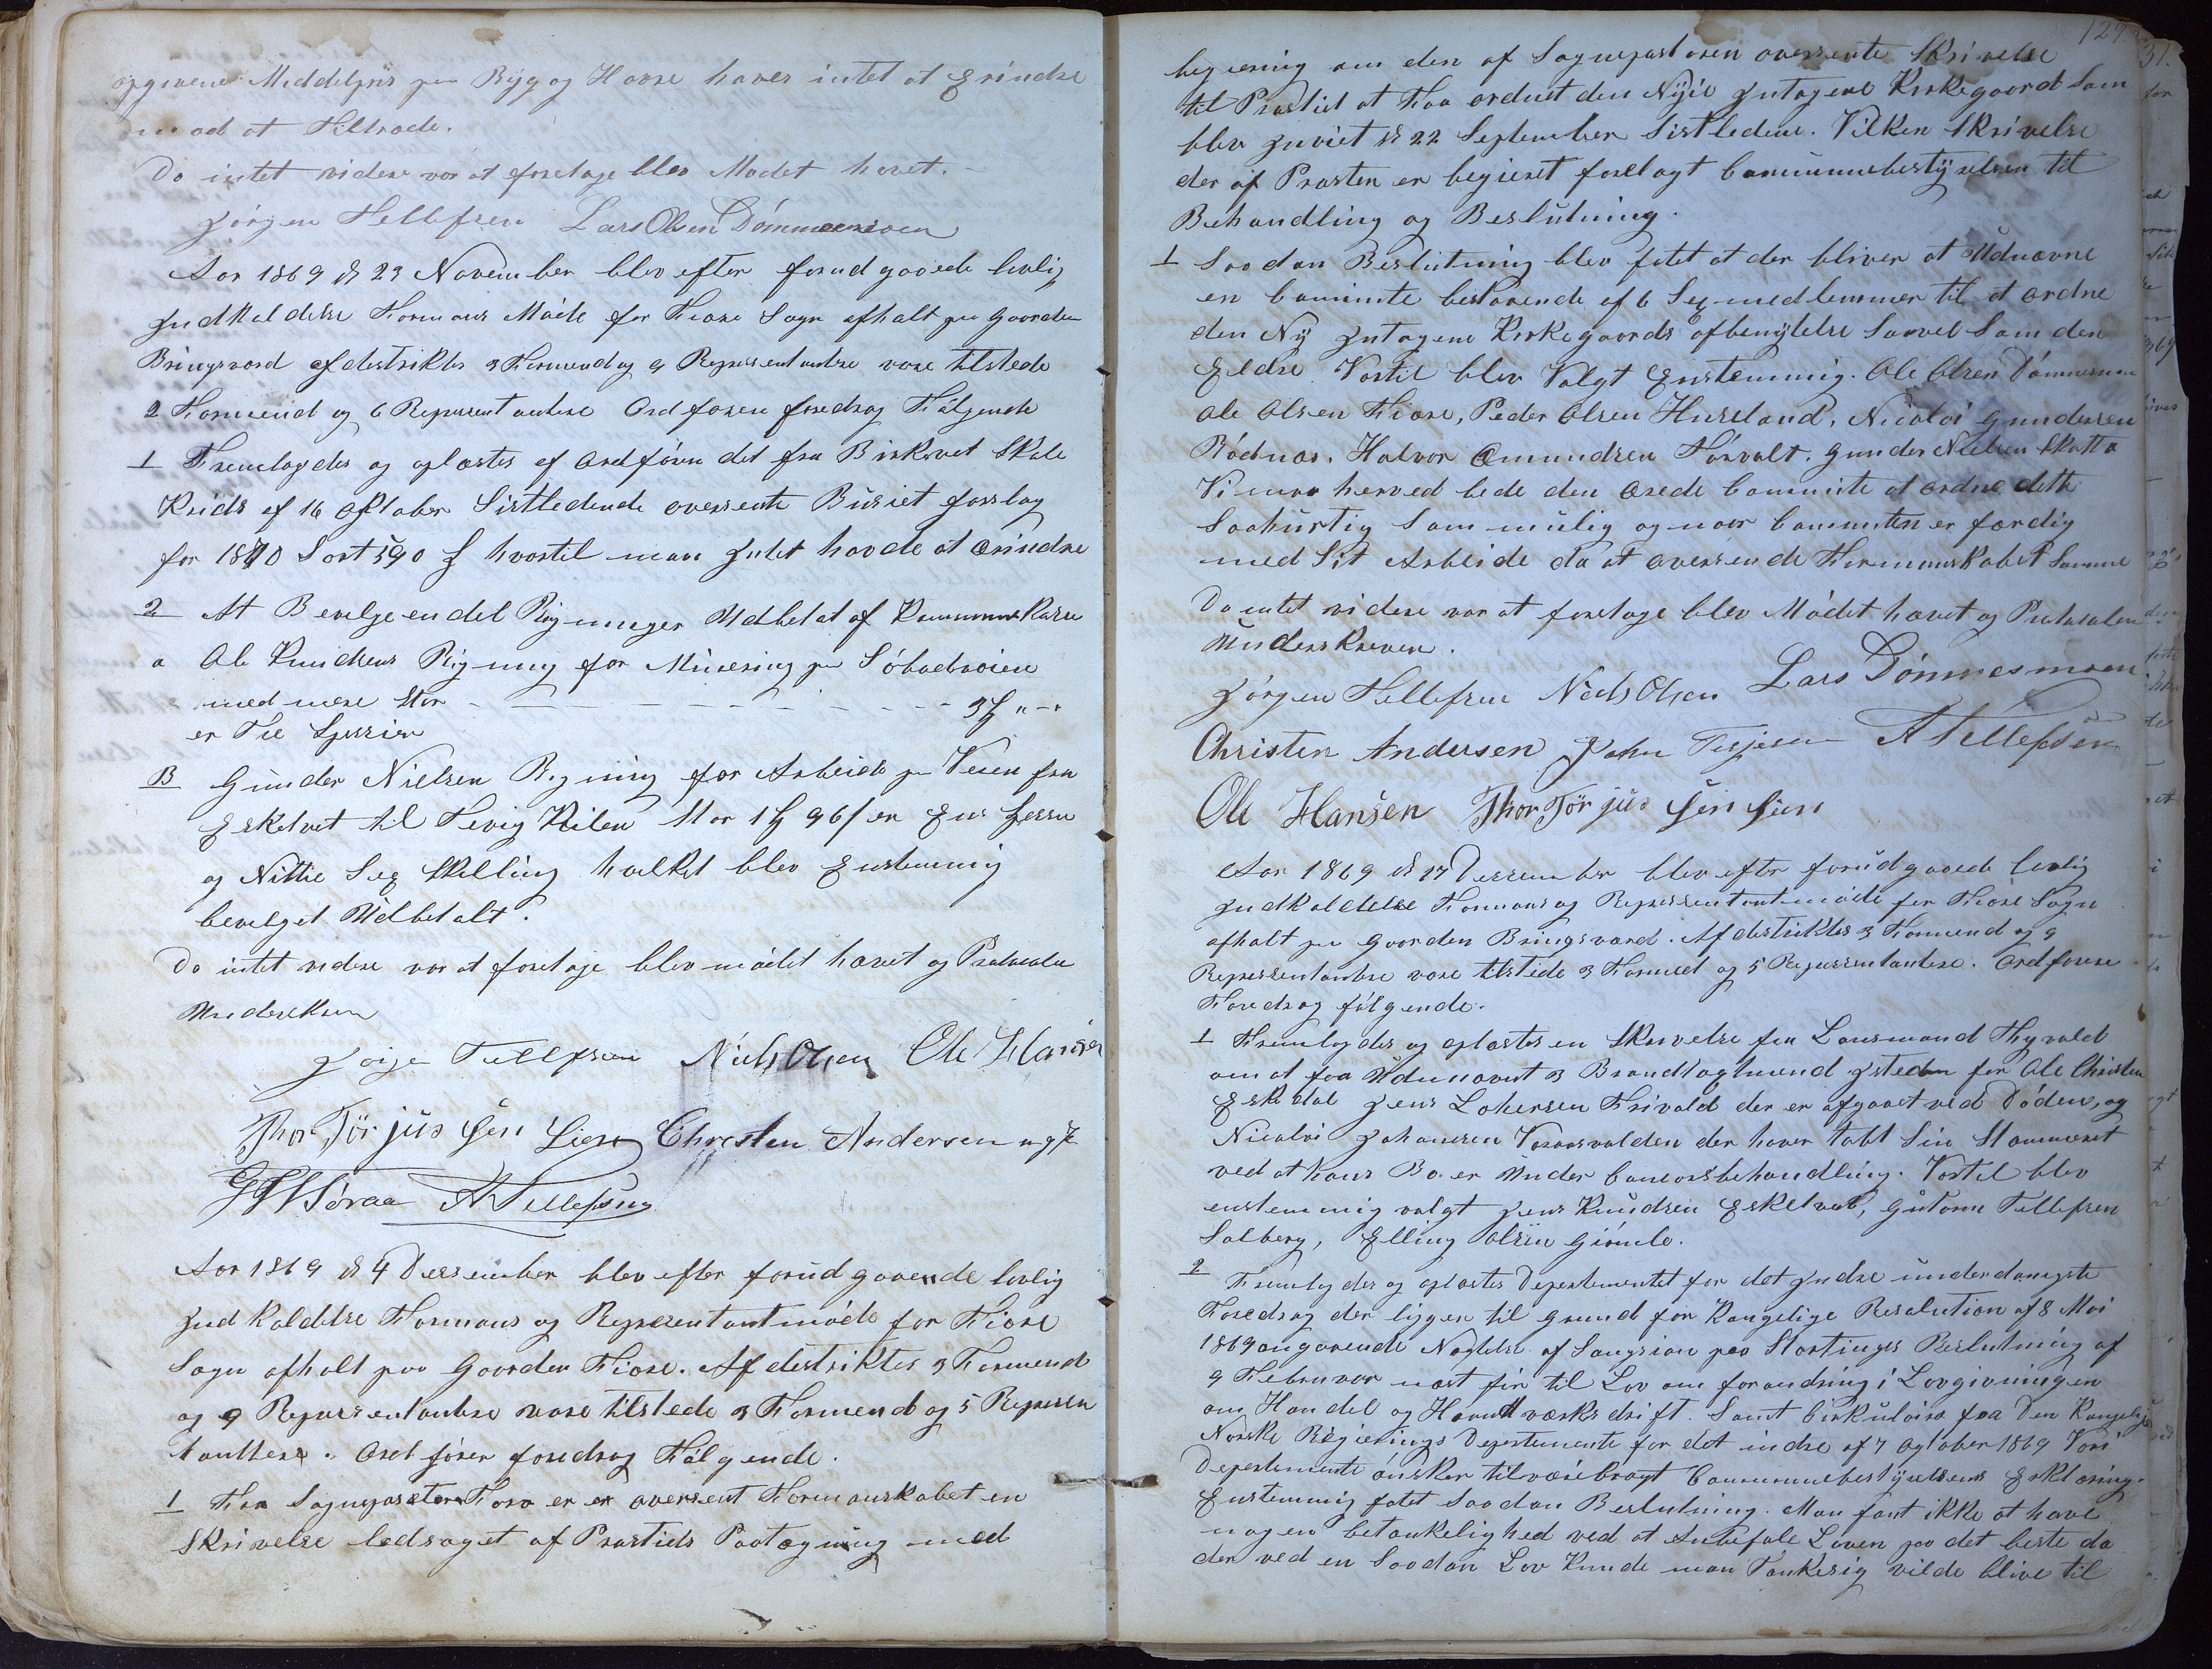 opgivene Middelpris paa Byg og Havre haves intet at Erindre
mod at Tiltræde.
Da intet videre var at foretage blev Mødet hævet. -
Jørgen Tellefsen Lars Olsen Dømmesmoen
Aar 1869 d 23 November blev efter forud gaaede lovlig
Indkaldelse Formans Møde for Fiære Sogn afholt paa Gaarden
Bringsværd af destriktes 3 Formend og 9 Representantere vare tilstede
2 Formend og 6 Representantere Ordføren foredrog Følgende
1 Fremlagdes og oplæstes af Ordføren det fra Birkevet Skole
Krids af 16 Oktober Sistledende oversente Busiet forslag
for 1870 Stort 590 hvortil man Intet havde at erindre
2 At Bevelge en del Regninger Udbetat af Kommunekasse
a Ole Knudsens Regning for Minering paa
med mere Stor - - - - - - - - - 3 " - "
er Tre Spessier
B Gunder Nielsen Regning for Arbeide paa Veien fra
Eskedvet til Fevig Kilen Stor 1 96 / er En Spessi
og Nittie Seg Skelling hvelket blev Enstemmig
bevelget Udbetalt.
Da intet videre var at foretage blev mødet hævet og Protocolen
Underskreven
Jørgen Tellefsen Niels Olsen Ole Hansen
Thor Tørjus Sen Lien Christen Andersen
A Tellefsen
Aar 1869 d 4 Dessember blev efter forud gaaende lovlig
Ind Kaldelse Formans og Representantmøde for Fiære
Sogn afholt paa Gaarden Fiære. Af destriktes 3 Formend
og 9 Representantere vare tilstede 3 Formend og 5 Represen
tanttere. Ord fører foredrog Følgende.
1 Fra Sognepræsten er er oversent Formanskabet en
Skrivelse ledsaget af Prostiets Paategning med
129
begiering om den af Sognepastoren oversente Skrivelse
til Prostiet at Faa ordnet den Nyie Intagene Kirkegaard Som
blev Inviet d 22 September Sistledene. Vilken Skrivelse
der af Prosten er begieret forelagt Communnebestyrelsen til
Behandling og Beslutning.
1 Saadan Beslutning blev fatet at der bliver at Udnævne
en Commite bestaaende af 6 Seg medlemmer til at ordne
den Ny Intagene Kirkegaards afbenyttelse Saavel Som den
Eldre. Vortil blev Valgt Enstemmig. Ole Olsen Dømmesmoen
Ole Olsen Fiære, Peder Olsen Huseland, Nicolai Gundersen
Rødnes, Halvor Omundsen Torvolt, Gunder Nielsen
Vi maa herved bede den ærede Commite at ordne dette
Saahurtig Som mulig og naar Commiten er færdig
med Sit Arbeide da at oversende Formanskabet Samme
Da intet videre var at foretage blev Mødet hævet og Protocolen
Underskreven.
Jørgen Tellefsen Niels Olsen Lars Dømmesmoen
Christen Andersen John Terjesen A Tellefsen
Ole Hansen Thor Tørjus Sen Lien
Aar 1869 d 17 Dessember blev efter forudgaaede lovlig
Indkaldelse Formans og Representantmøde for Fiære Sogn
afholt paa Gaarden Bringsværd. Af destriktes 3 Formend og 9
Representantere vare tilstede 3 Formend og 5 Representantere. Ordførere
Foredrog følgende.
1 Fremlagdes og oplæstes en Skrivelse fra Lensmand Thyvold
om at faa Udnævnt 3 Brandtagtmend Isteden for Ole Christen
Eskedal Jens Lohersen Frivold der er afgaaet ved Døden, og
Nicolai Johansen der haver tabt Sin Stemmeret
ved at hans Bo er Under Concorsbehandling. Vortil blev
enstemmig valgt Jens Knudsen Eskedvet, Gutorm Tellefsen
Salberg, Elling Olsen Giømle.
2 Fremlagdes og oplæstes Departementet for det Indre underdanigste
Foredrag der ligger til grund for Kongelige Resolution af 8 Mai
1869 angaaende Nægtelse af Sangsion paa Stortinges Beslutning af
9 Februvar næst før til Lov om forandring i Lovgivningen
om Handel og Haandtværksdrift. Samt Cirkulære fra Den Kongelige
Norske Regierings Departemente for det indre af 7 Ogtober 1869 Vori
Departemente ønsker tilveiebragt Communnebestyrelsens Erklæring.
Enstemmig fatet Saadan Beslutning. Man fant ikke at have
nogen betænkelighed ved at Anbefale Loven paa det beste da
der ved en Saadan Lov Kunde man Tænke sig vilde blive til